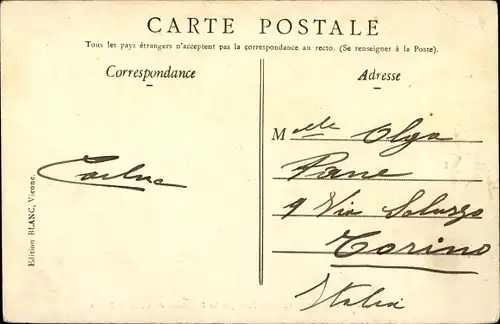 CARTE POSTALE
Tous les pays étrangers n'acceptent pas la correspondance au recto. (Se renseigner à la Poste).
Correspondance
Adresse
Edition BLANC, Vienne.
Melle Olga
Pane
9 Via Saluzzo
Torino
Italia